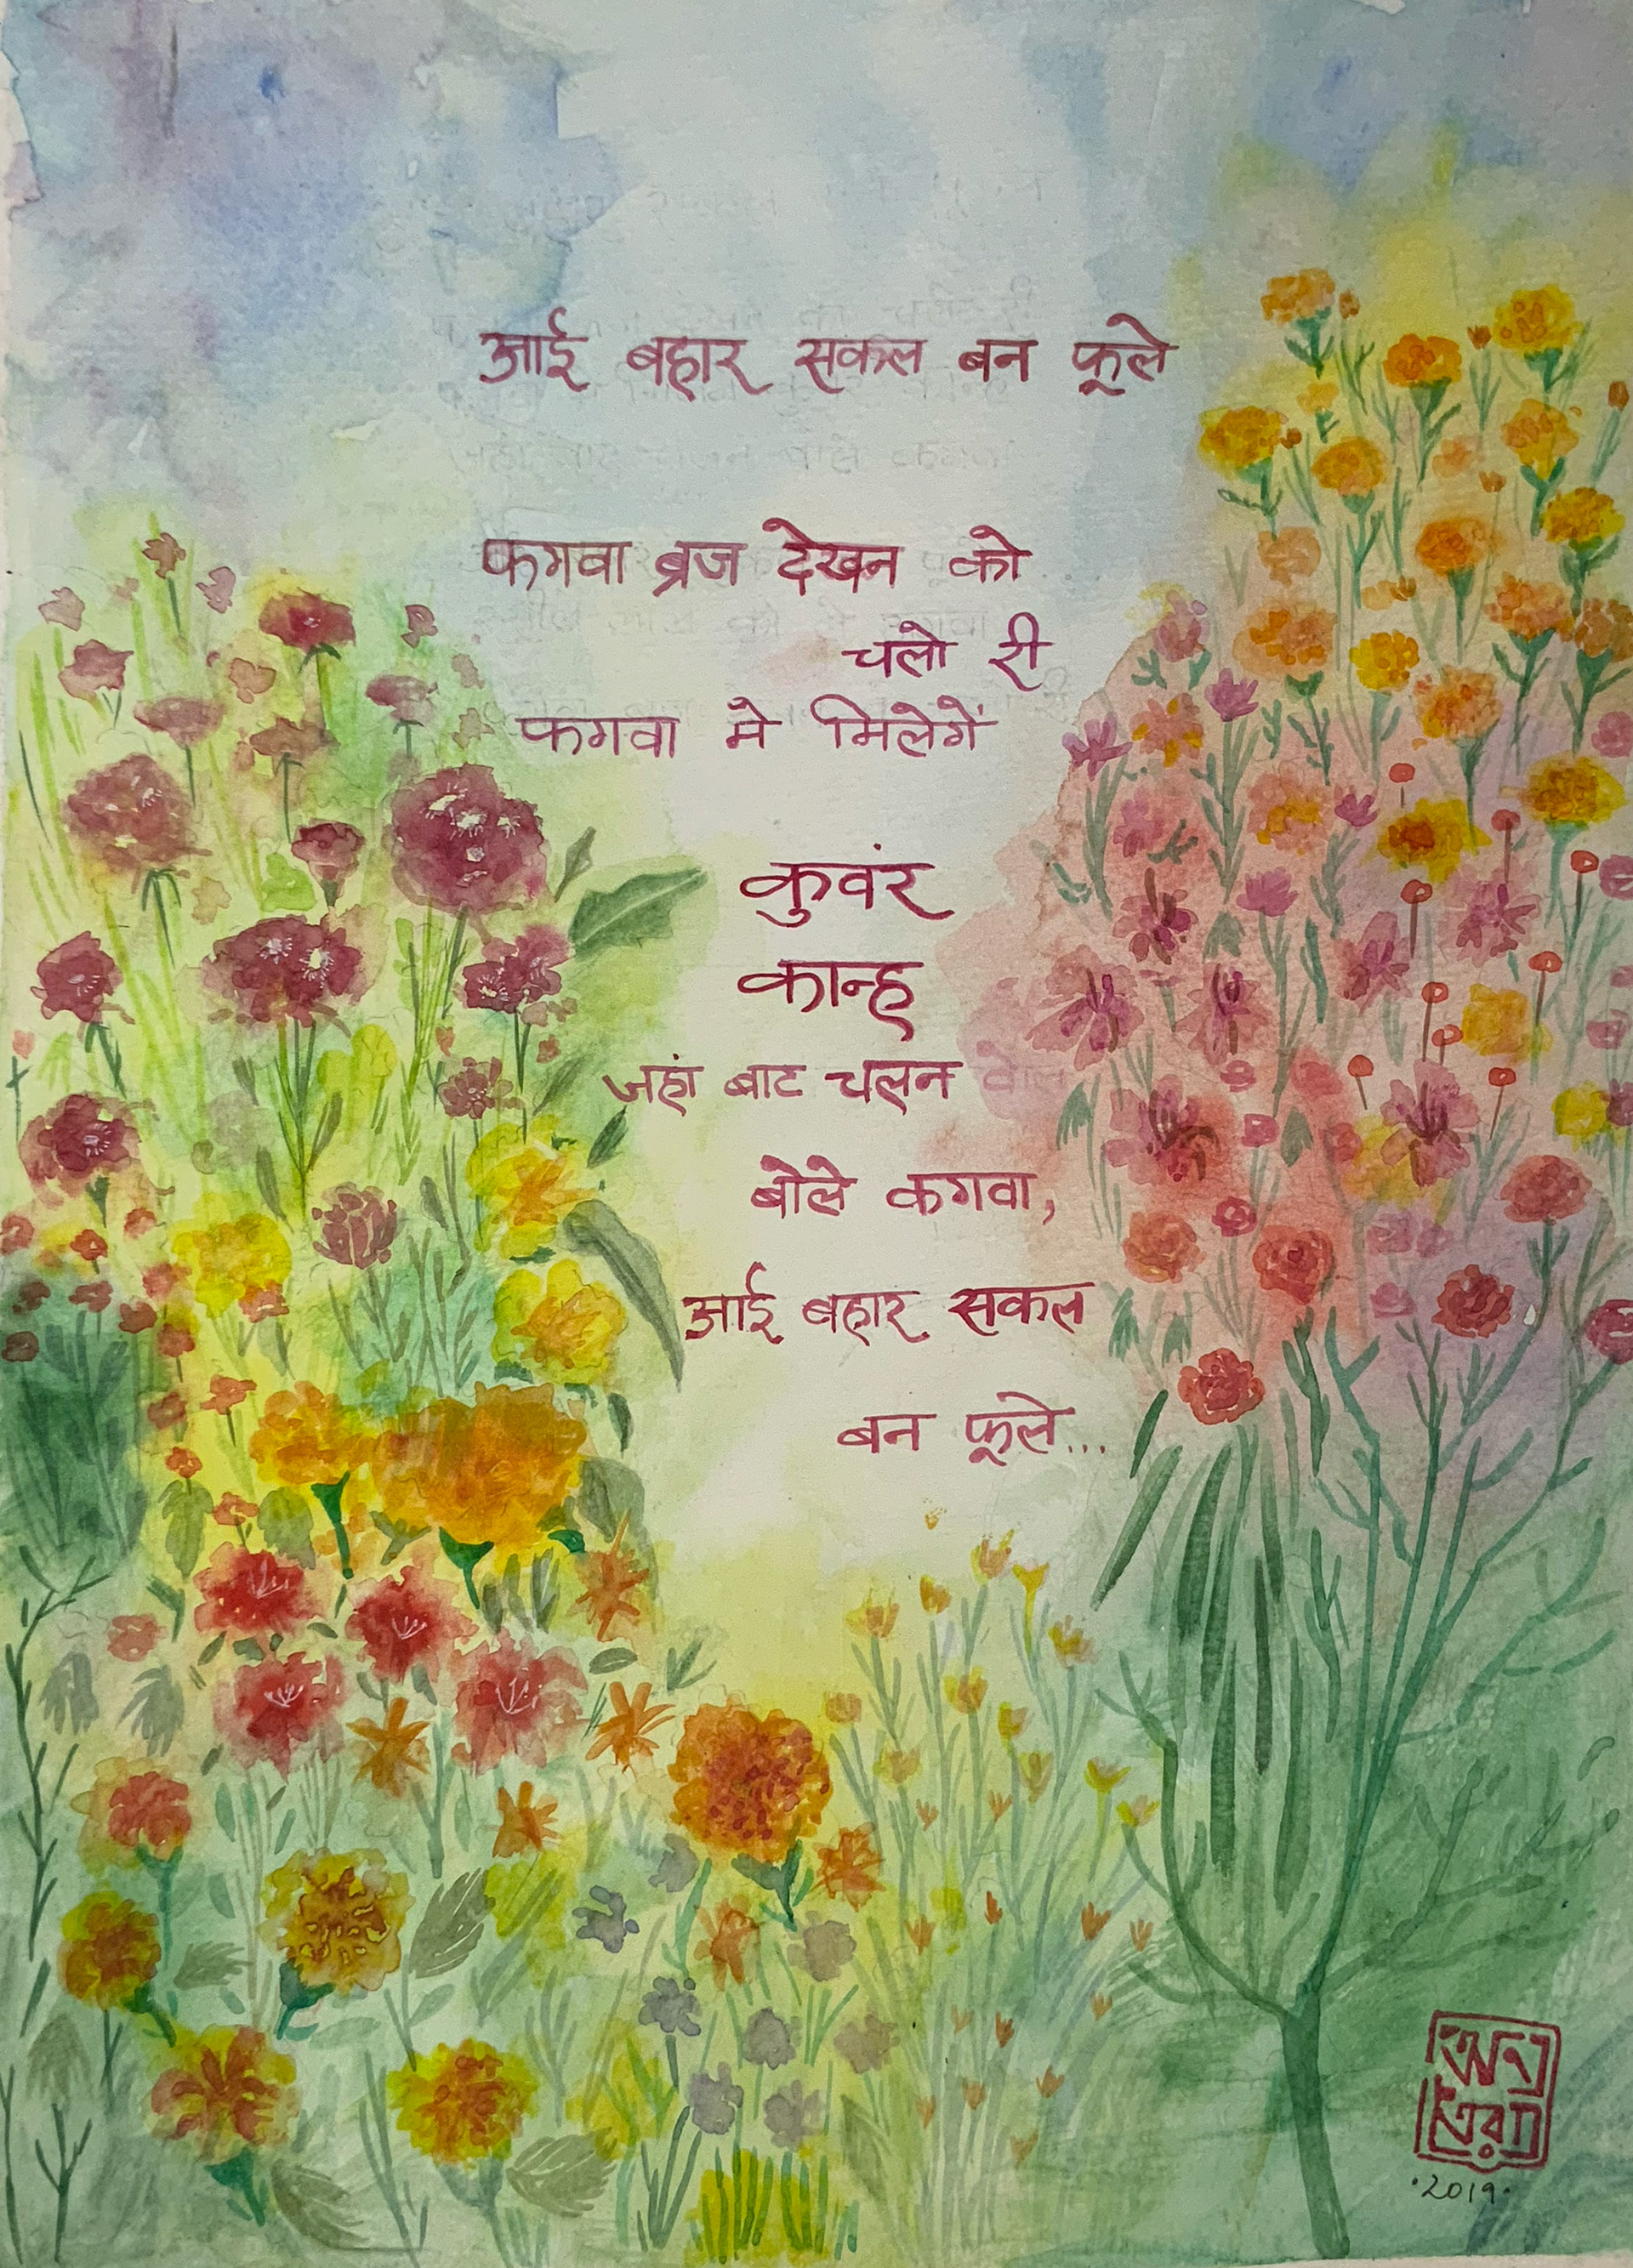 आई बहार सकल बन फूले
फगवा ब्रज देखन को
चलो री
फगवा मे मिलेगें
कुवंर
कान्ह
जहां बाट चलन
बोले कगवा,
आई बहार सकल
बन फूले...
·2019·